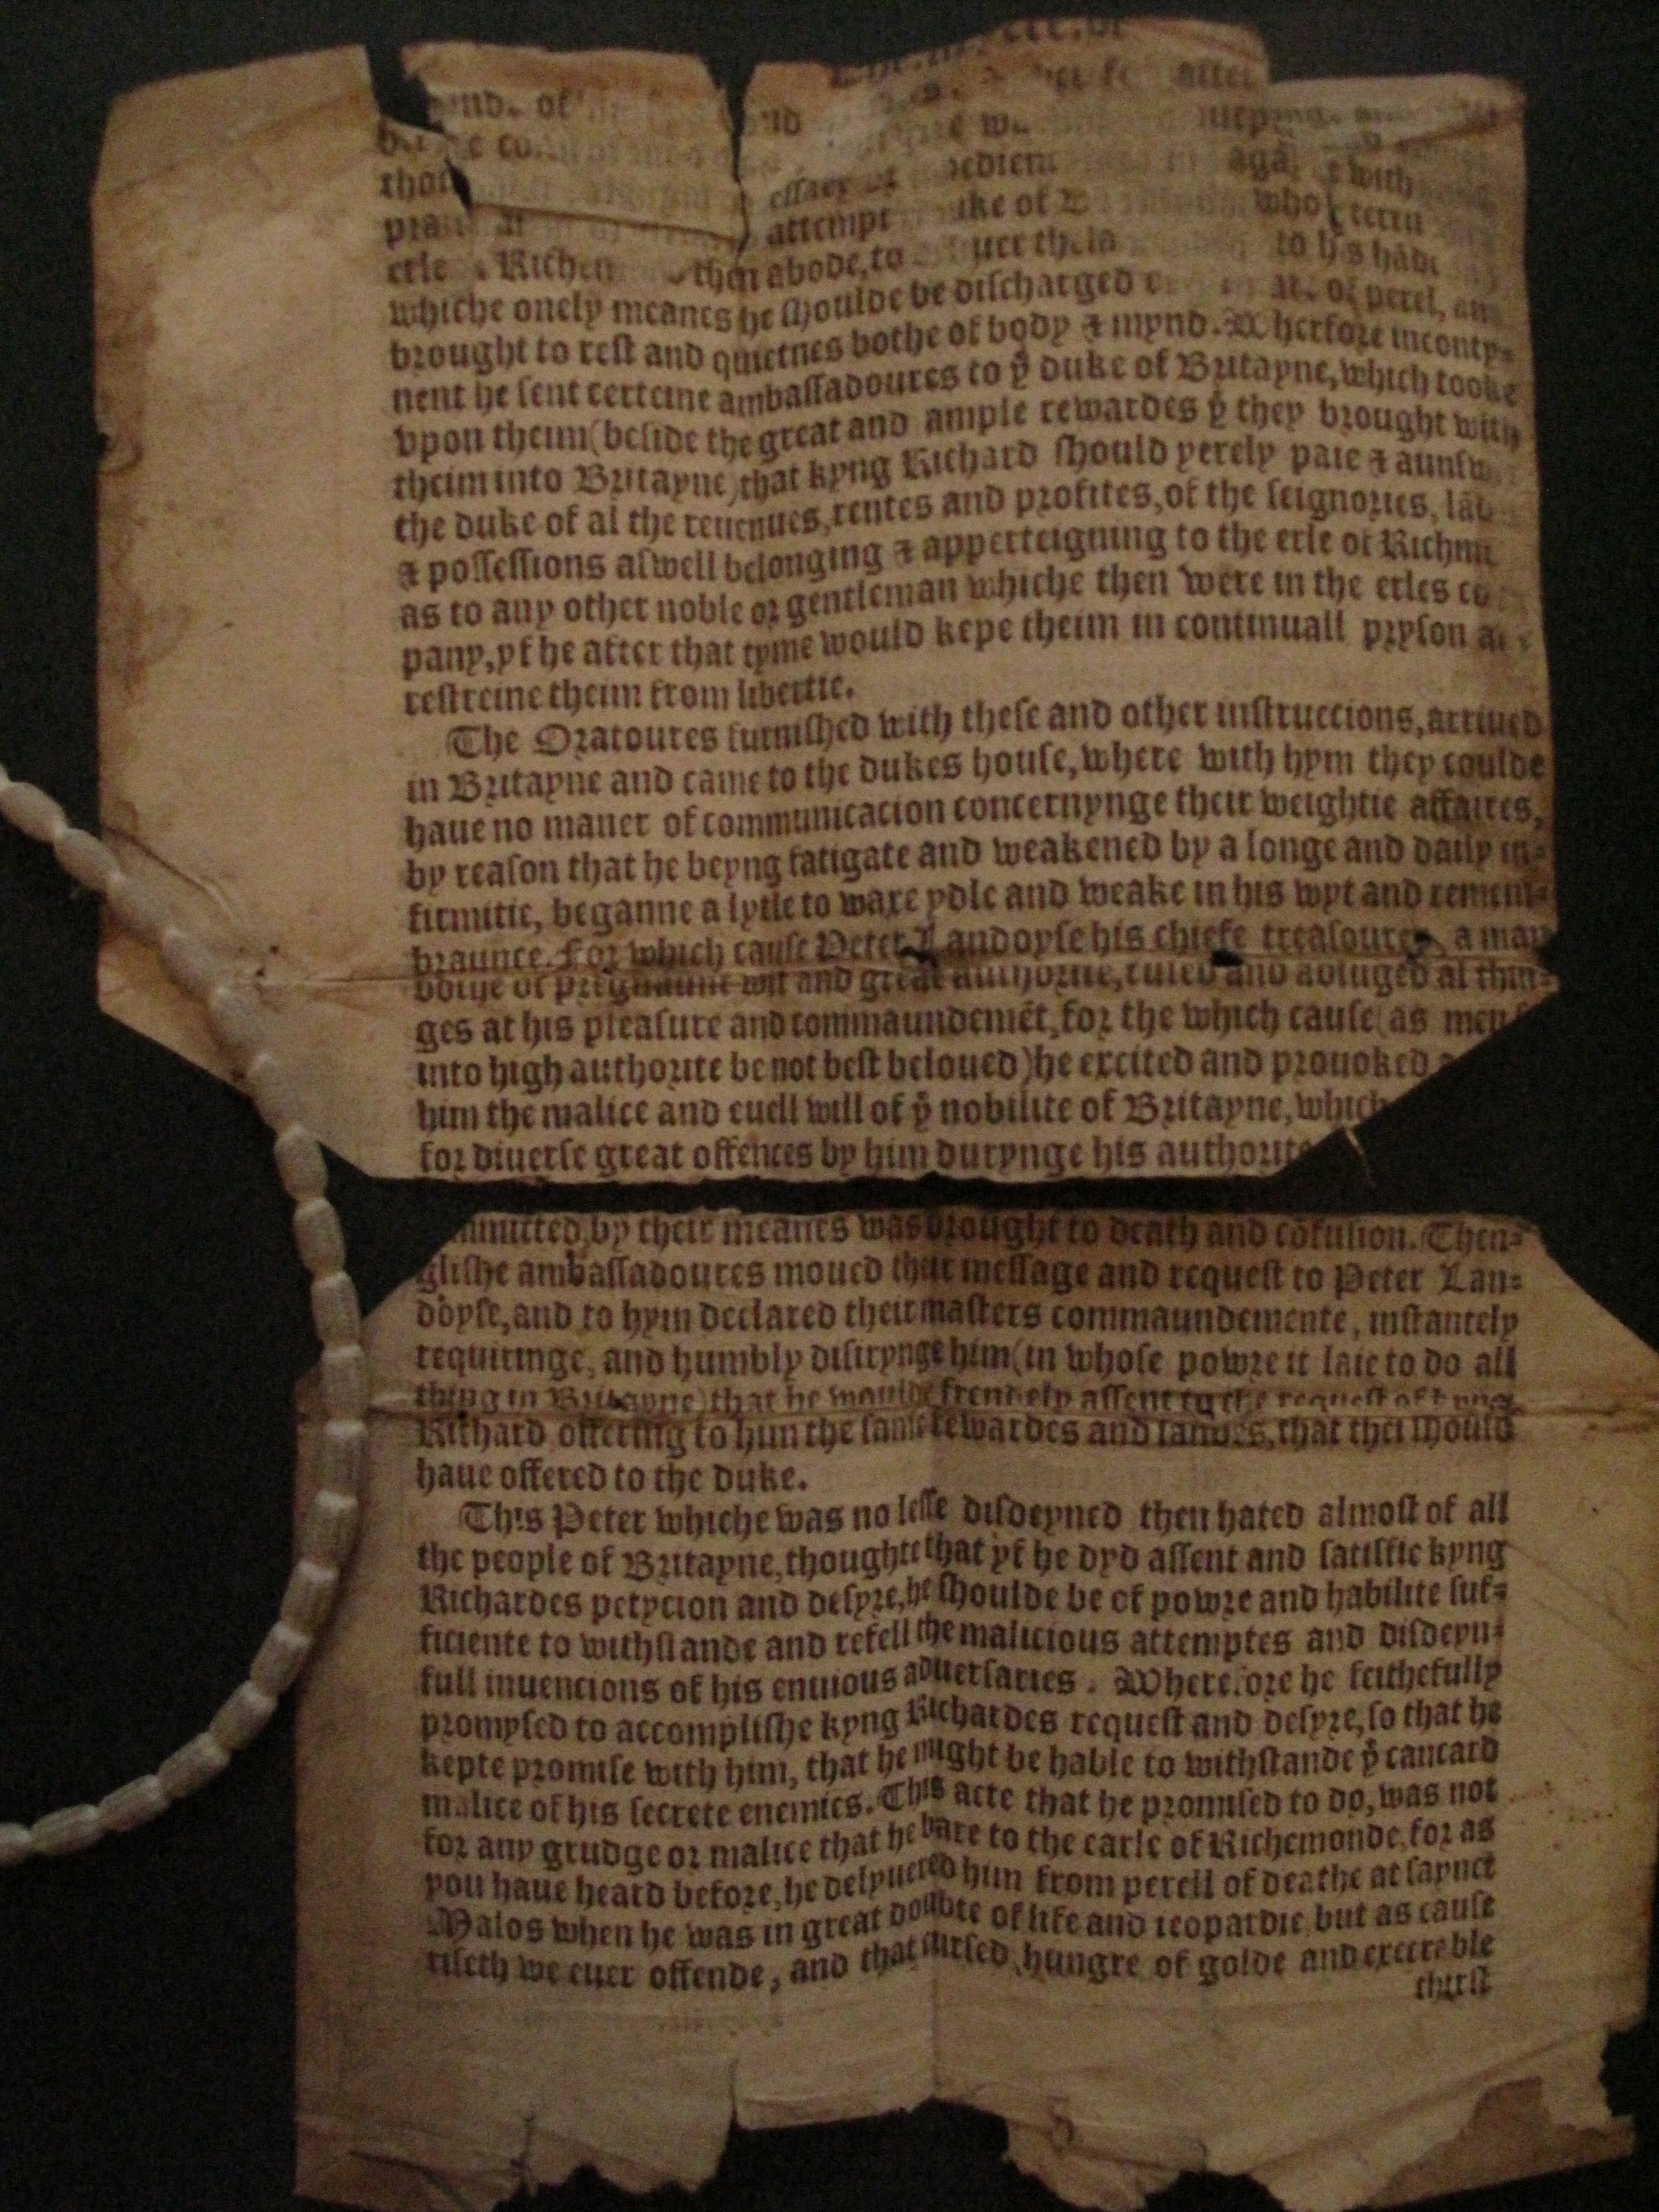 of
thos
attempt
erle Richem then abode, to
whiche onely meanes he shoulde be discharged of perel, an
brought to rest and quietnes bothe of body ⁊ mynd. Wherfore inconty-
nent he sent certeine ambassadoures to yͤ duke of Britayne, which tooke
vpon theim (beside the great and ample rewardes yͭ they brought with
theim into Britayne) that kyng Richard should yerely paie ⁊ aunsw
the duke of al the reuenues, rentes and profites, of the seignories, lād
⁊ possessions aswell belonging ⁊ apperteigning to the erle of Richm
as to any other noble or gentleman whiche then were in the erles co
pany, yf he after that tyme would kepe theim in continuall pryson a
restreine theim from libertie.
The Oratoures furnished with these and other instructions, arriued
in Britayne and came to the dukes house, where with hym they coulde
haue no maner of communicacion concernynge their weightie affaires,
by reason that he beyng fatigate and weakened by a longe and daily in-
firmitie, beganne a lytle to waxe ydle and weake in his wyt and remem-
braunce. For which cause Peter Landoyse his chiefe treasourer, a man
bothe of pregnaunt wit and great authorite, ruled and adiuged al thin-
ges at his pleasure and commaundemēt, for the which cause (as men
into high authorite be not best beloued) he excited and prouoked
him the malice and euell will of yͤ nobilite of Britayne, which
for diuerse great offences by him durynge his authorite
mmitted, by their meanes was brought to death and cōfusion. Then-
glishe ambassadoures moued their message and request to Peter Lan-
doyse, and to hym declared their masters commaundemente, instantely
requiringe, and humbly disirynge him (in whose powre it laie to do all
thing in Britayne) that he woulde frendely assent to the request of kyng
Richard offering to him the same rewardes and landes, that thei should
haue offered to the duke.
This Peter whiche was no lesse disdeyned then hated almost of all
the people of Britayne, thoughte that yf he dyd assent and satisfie kyng
Richardes petycion and desyre, he shoulde be of powre and habilite suf-
ficiente to withstande and refell the malicious attemptes and disdeyn-
full inuencions of his enuious aduersaries. Wherefore he feithefully
promysed to accomplishe kyng Richardes request and desyre, so that he
kepte promise with him, that he might be hable to withstande yͤ cancard
malice of his secrete enemies. This acte that he promised to do, was not
for any grudge or malice that he bare to the earle of Richemonde, for as
you haue heard before, he delyuered him from perell of deathe at saynct
Malos when he was in great doubte of life and ieopardie, but as cause
riseth we euer offende, and that cursed hungre of golde and execrable
thirst